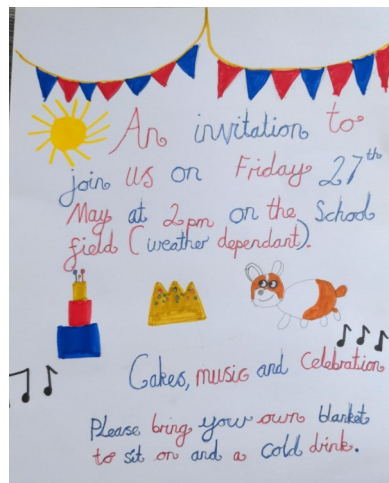 An invitation to
join us on Friday 27th
May at 2pm on the School
field (weather dependant).
Cakes, music and Celebration
Please bring your own blanket
to sit on and a cold drink.